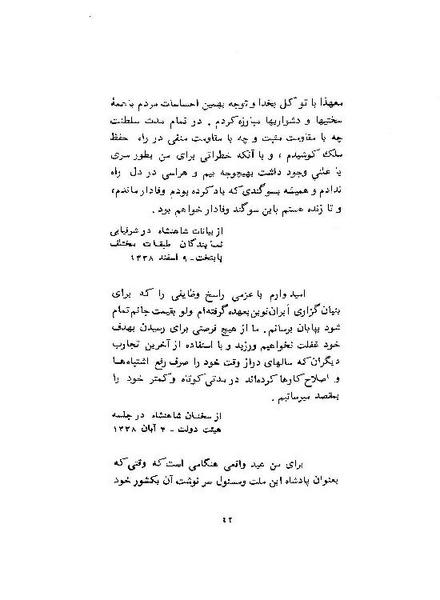 معهذا با توکل بخدا و توجه بهمین احساسات مردم با همهٔ
سختیها و دشواریها مبارزه کردم . در تمام مدت سلطنت
چه با مقاومت مثبت و چه با مقاومت منفی در راه حفظ
ملک کوشیدم ، و با آنکه خطراتی برای من بطور سری
یا علنی وجود داشت بهیچوجه بیم و هراسی در دل راه
ندادم و همیشه بسوگندی که یاد کرده بودم وفادار ماندم ،
و تا زنده هستم باین سوگند وفادار خواهم بود .
از بیانات شاهنشاه در شرفیابی
نمایندگان طبقات مختلف
پایتخت - ۹ اسفند ۱۳۳۸
امیدوارم با عزمی راسخ وظایفی را که برای
بنیان گزاری ایران نوین بعهده گرفته‌ام ولو بقیمت جانم تمام
شود بپایان برسانم . ما از هیچ فرصتی برای رسیدن بهدف
خود غفلت نخواهیم ورزید و با استفاده از آخرین تجارب
دیگران که سالهای دراز وقت خود را صرف رفع اشتباه‌ها
و اصلاح کارها کرده‌اند در مدتی کوتاه و کمتر خود را
بمقصد میرسانیم .
از سخنان شاهنشاه در جلسه
هیئت دولت - ۴ آبان ۱۳۳۸
برای من عید واقعی هنگامی است که وقتی که
بعنوان پادشاه این ملت ومسئول سرنوشت آن بکشور خود
۴۲